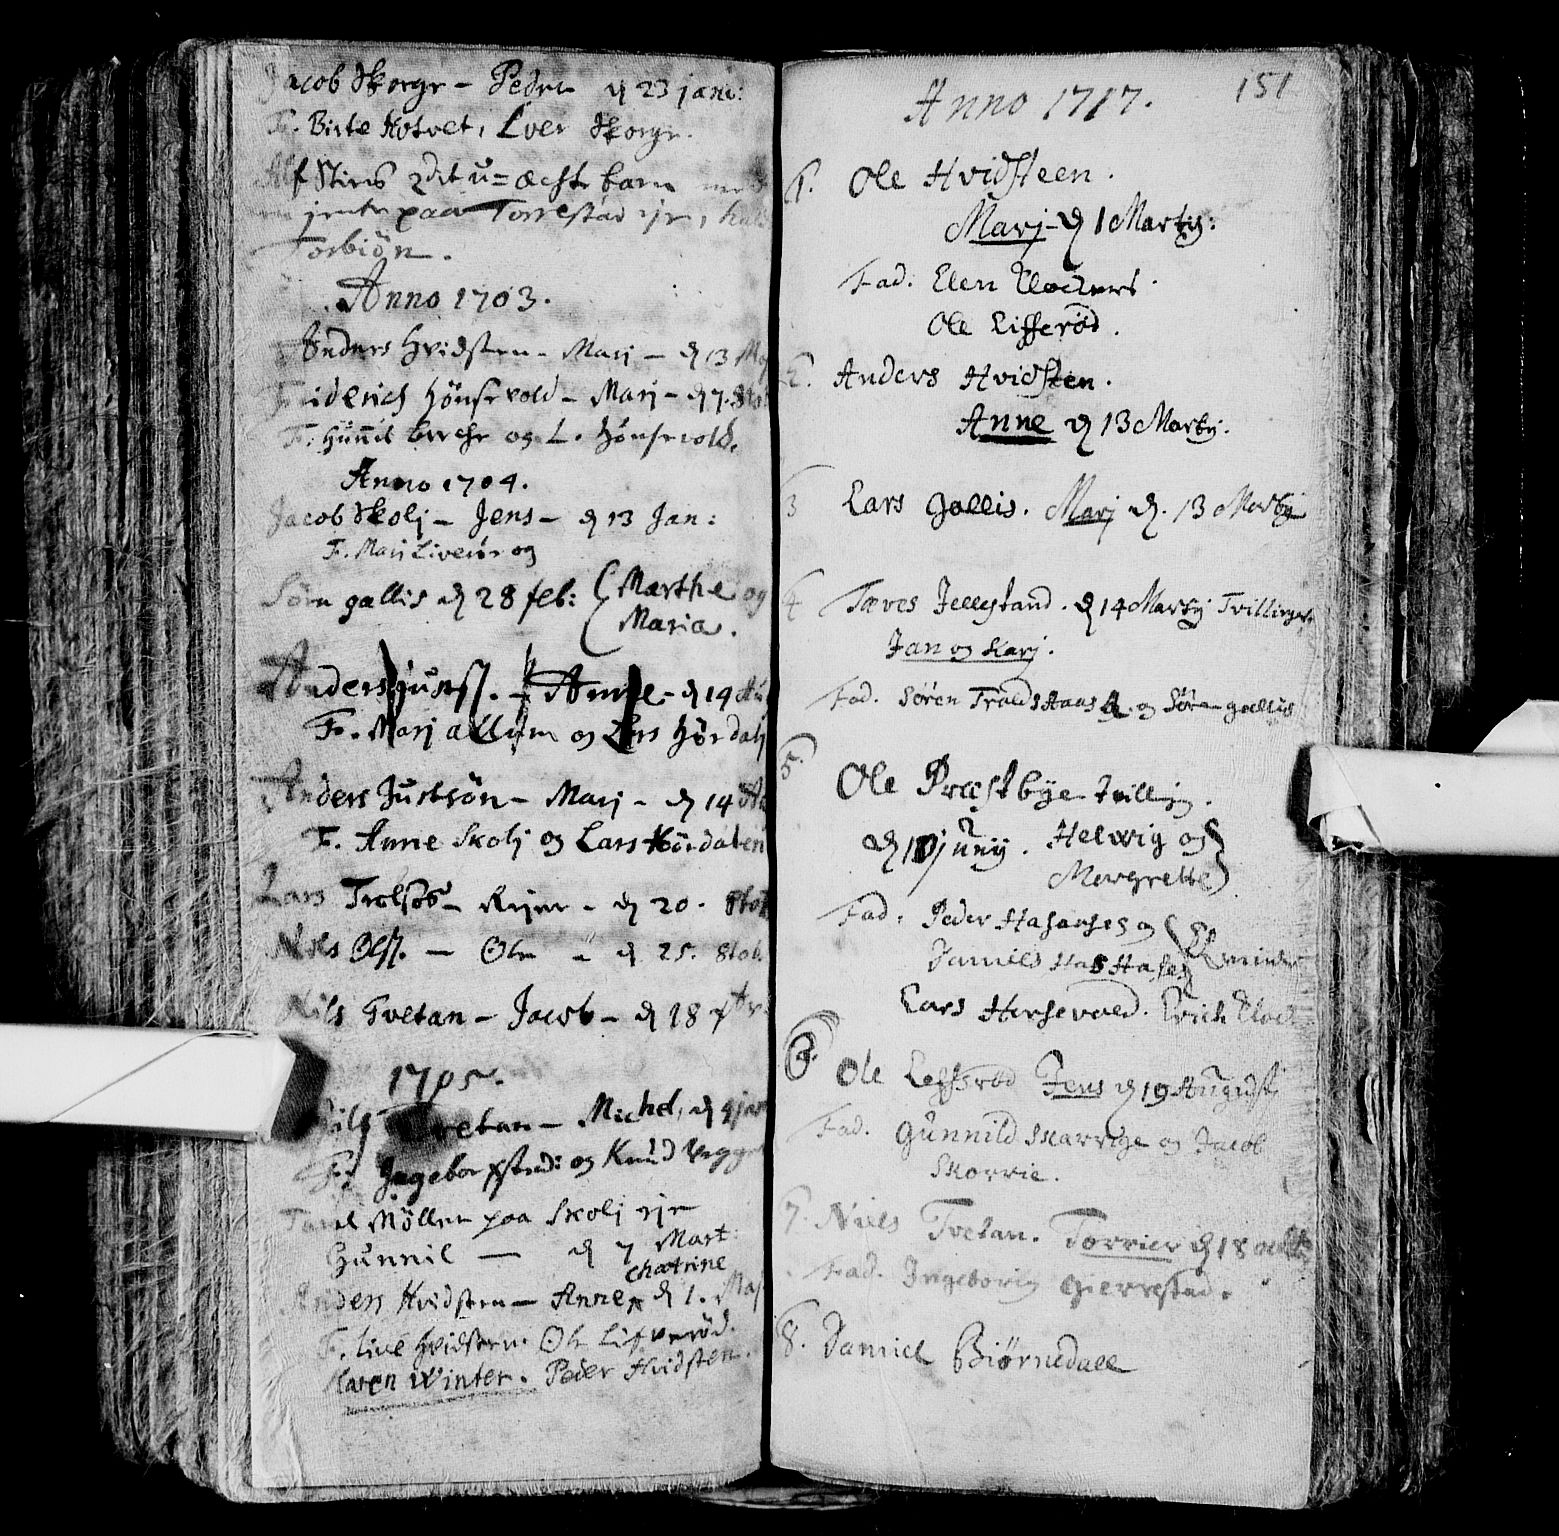 Jacob Skorge - Peder d 23 janu:
F. Birte Hotvet, Lver Skorge.
Alf Stires 2det u=æchte barn med
jente paa Torrestad eje, kald
Torbiøn.
Anno 1703.
Anders Hvidsten - Marj - d 13 Maj
Friderich Hønsevold - Marj - d 7. 8tob
F. Gunnil og L. Hønsevold.
Anno 1704.
Jacob Skolj - Jens - d 13 Jan:
F. Marj Liverør og
Sørn gallis d 28 feb: ( Marthe og
Maria.
Anders Justs. - Anne - d 14 Au
F. Marj allum og Lars Hørdalj
Anders Justsøn - Marj - d 14 Au
F. Anne Skolj og Lars Hørdalen
Lars Trolsøs - Rejer - d 20. 8tob
Nils Ols. - Ole - d 25. 8tob.
Nils Tvetan - Jacob - d 18
1705.
Nils Tvetan - Michel, d 4 jan
F. Ingebor og Knud Vegger
Møller paa Skolj eje
Gunnil - d 7 Mart:
Chatrine
Anders Hvidsten - Anne d 1. Maj
F. Live Hvidsten. Ole Lisverød.
Karen Winter. Peder Hvidsten.
151
Anno 1717.
1. Ole Hvidsteen.
Marj - d 1 Martij:
Fad: Elen Clockers.
Ole Lisserød.
2. Anders Hvidsten.
Anne d 13 Martij.
3 Lars Gallis. Marj d. 13 Martij
4 Tæves Jellestand. d 14 Martij Tvillinger
Jan og Karj.
Fad. Søren Tralds Haas og Søren gallis
5. Ole Præstbye Tvilling.
d 1 Junij. Helwig og
Margrette
Fad: Peder Hasaases og
Daniels Has Hases
Lars Hersevold. Erich
6. Ole Lesserød Jens d 19 Augusti
Fad. Gunnild Skarrige og Jacob
Skorrie.
7. Niels Tvetan. Torrier d 18 octb
Fad. Ingeborig Gierrestad.
8. Daniel Biørnedall